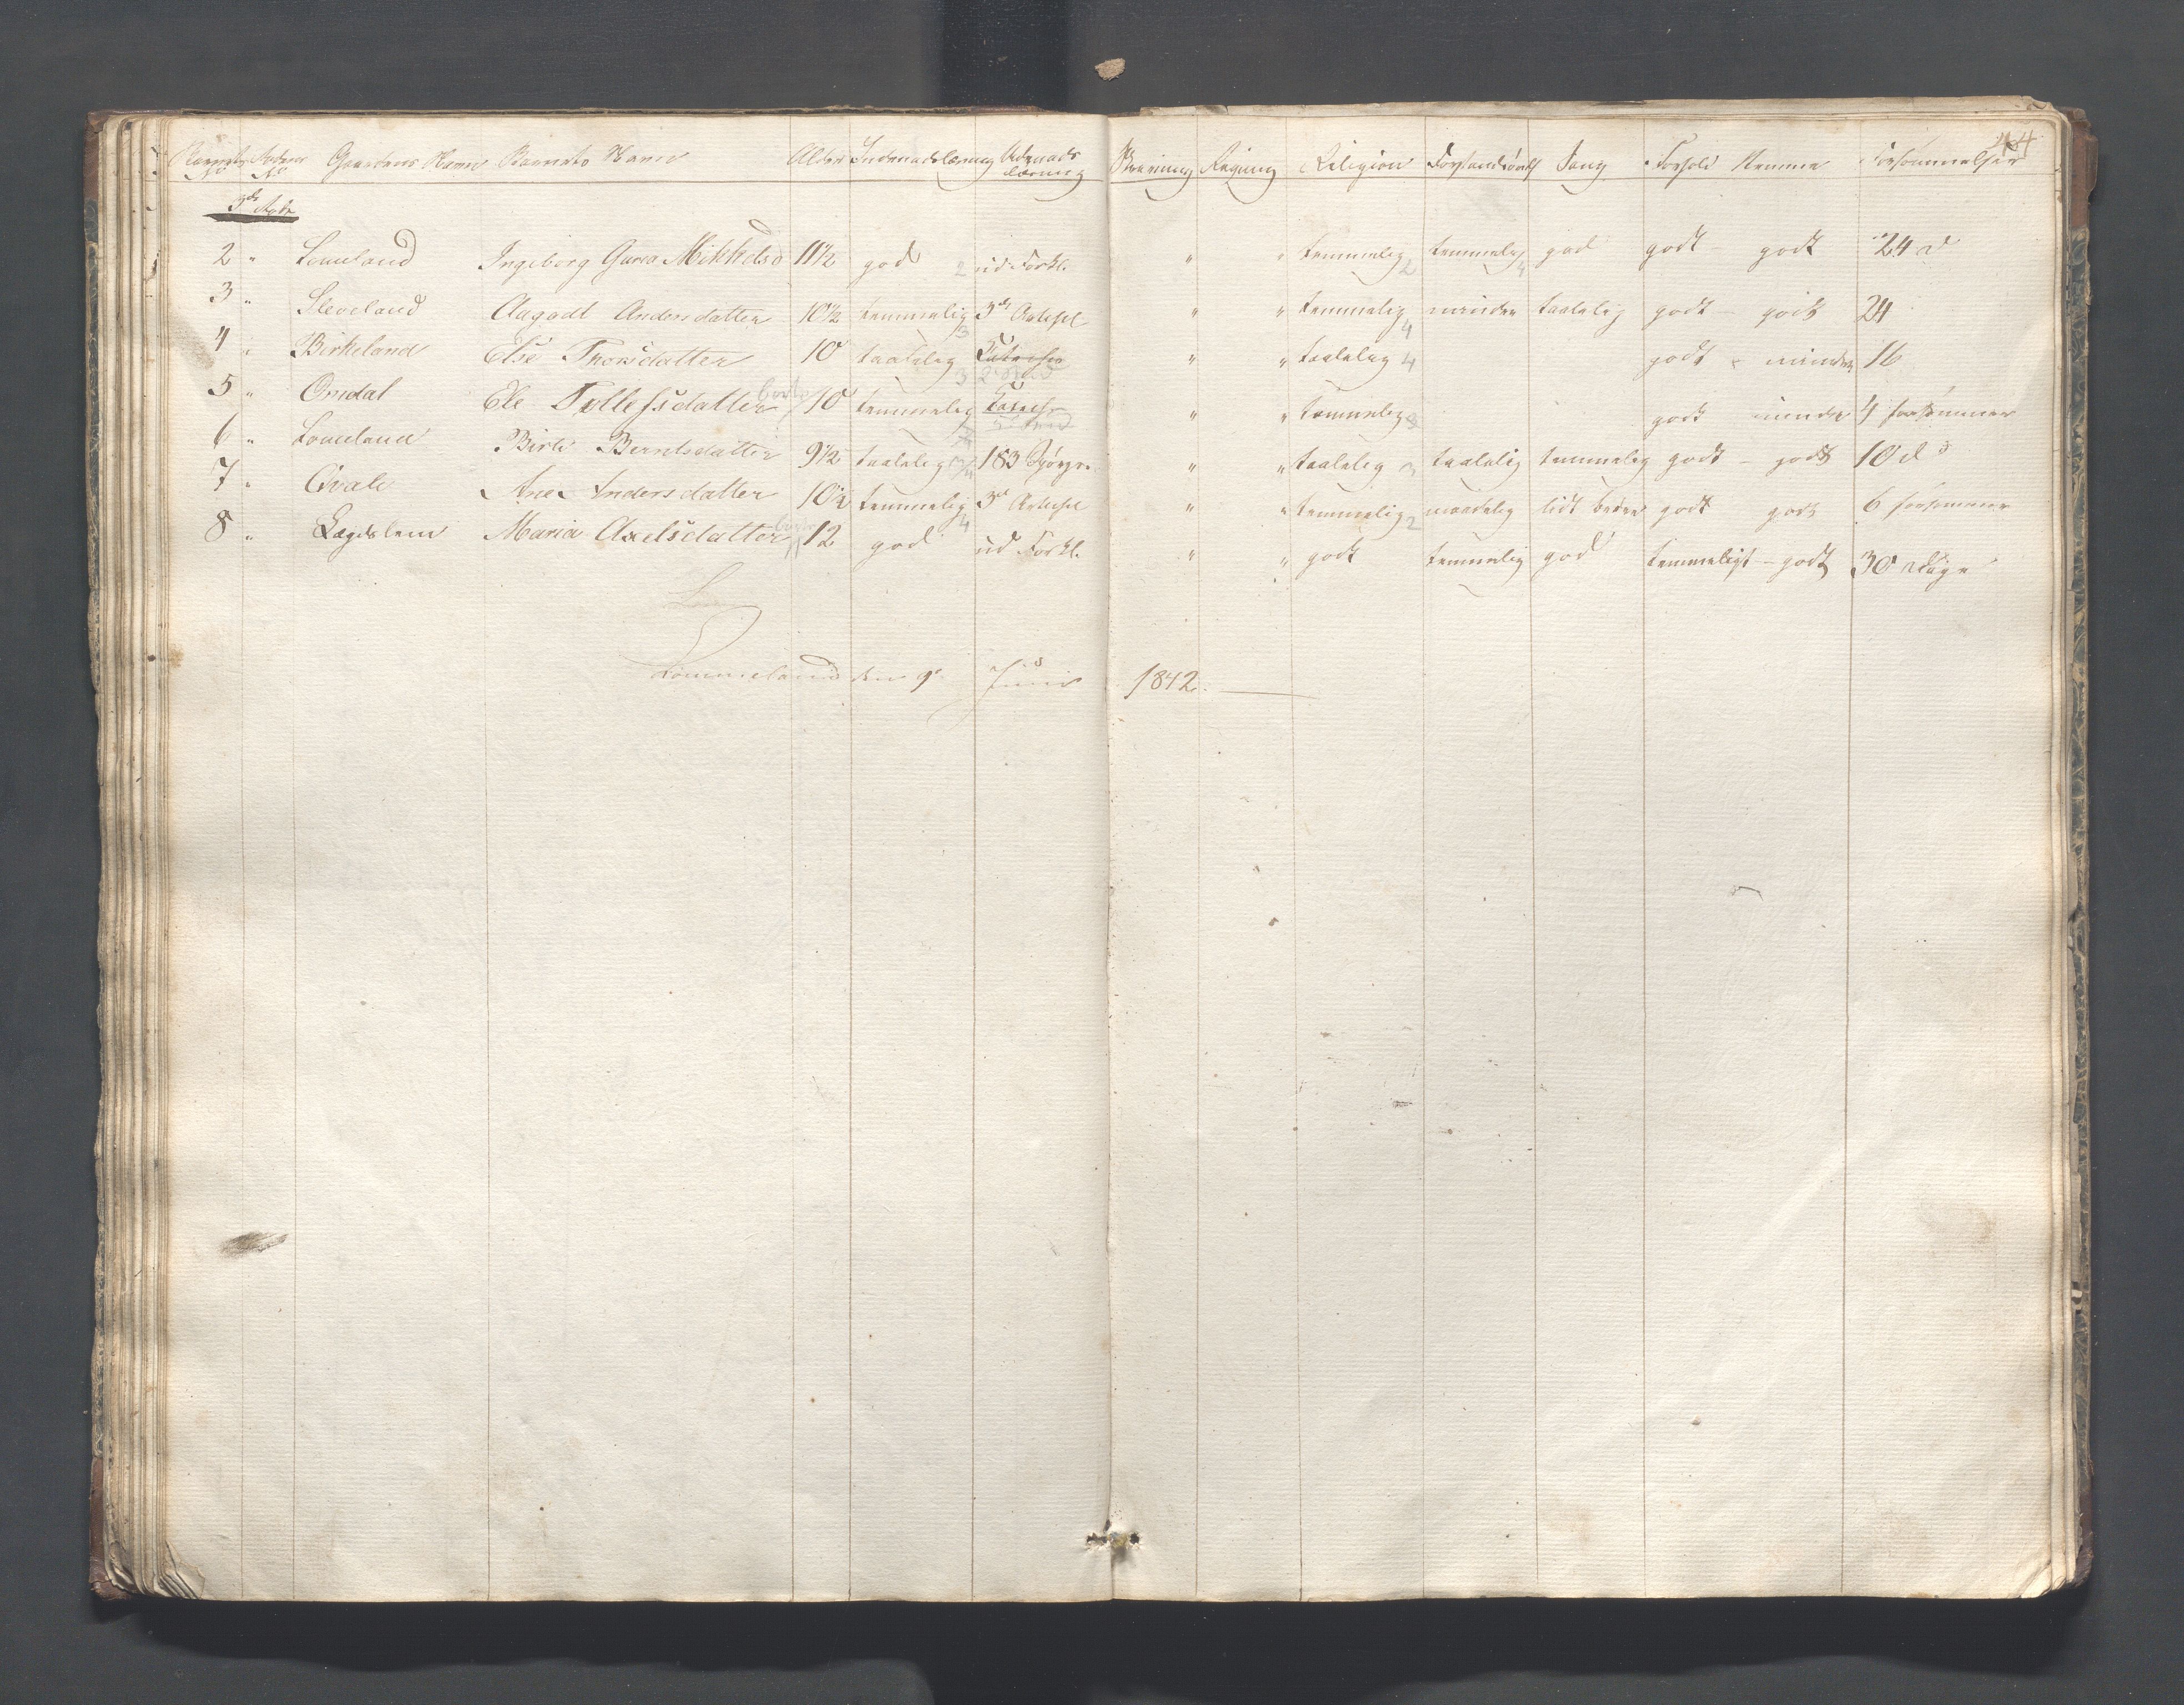 44
Barnets No Rodens No Gaardens Navn Barnets Navn Alder Indenadslæsning Udenads læsning Skrivning Regning Religion Sang Forhold Nemme Forsømmelser
3de Rode
2 " Lomeland Ingeborg Guria Mikkelsd 11½ god 2 ud Forkl. " " temmelig 2 temmelig 4 god godt - godt 24 d
3 " Sleveland Aagadt Andersdatter 10½ temmelig 3 3de Artikel " " temmelig 4 mindre taalelig godt - godt 24
4 " Birkeland Else Thorsdatter 10 taalelig 3 " " taalelig 4 godt - mindre 16
5 " Omdal Ele Tollefsdatter 10 temmelig " " temmelig 3 godt mindre 4
6 " Lomeland Birte Berntsdatter 9½ taalelig 183 Spørgs. " " taalelig 3 taalelig temmelig godt - godt 10 d
7 " Qvale Ane Andersdatter 10½ temmelig 4 3de Artikel " " temmelig 2 maadelig lidt bedre godt godt 6
8 " Lægdslem Maria Axelsdatter 12 god ud Forkl. " " godt temmelig god temmeligt - godt 30 Dage
Lommeland den 9 Juni 1842.